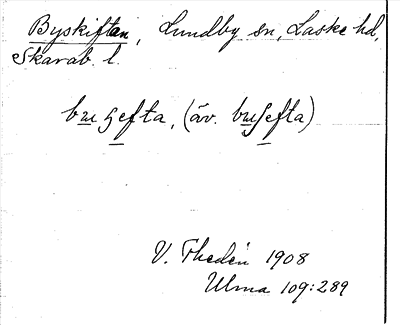 Byskiftan, Lundby sn, Laske hd,
Skarab. l.
bʉʂefta, (äv. bʉʃefta)
V. Thedén 1908
Ulma 109:289